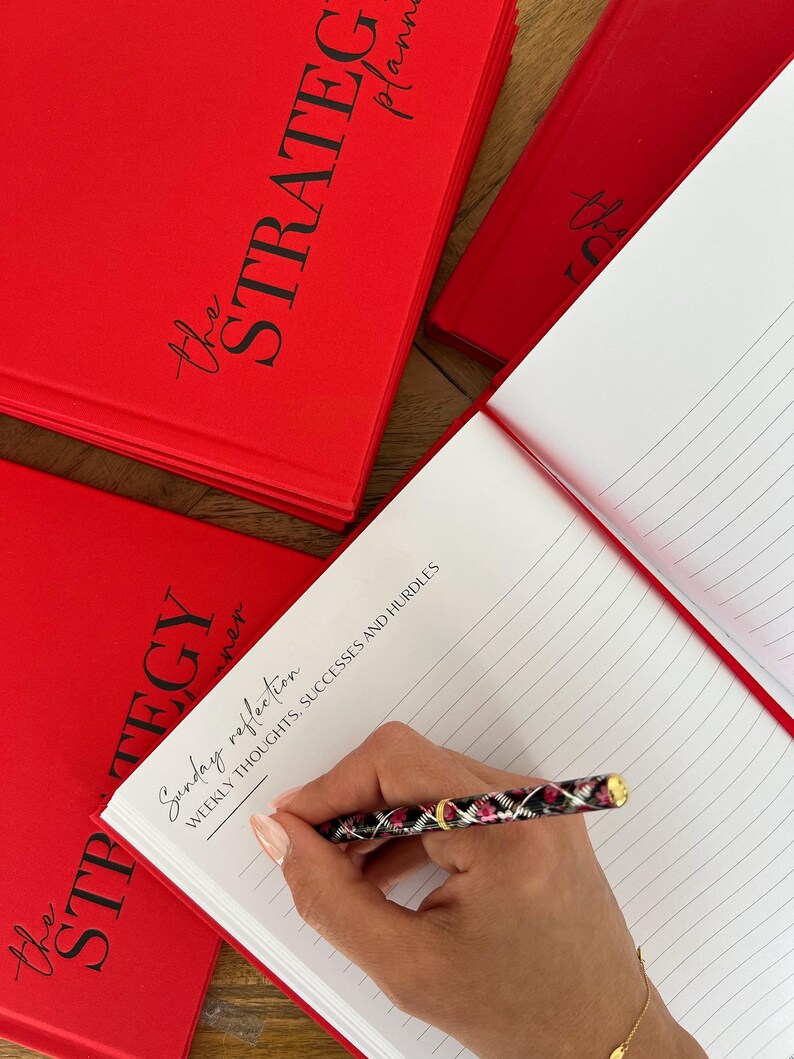 the
STRATEGY
planner
the
the
STRATEGY
Sunday reflection
WEEKLY THOUGHTS, SUCCESSES AND HURDLES